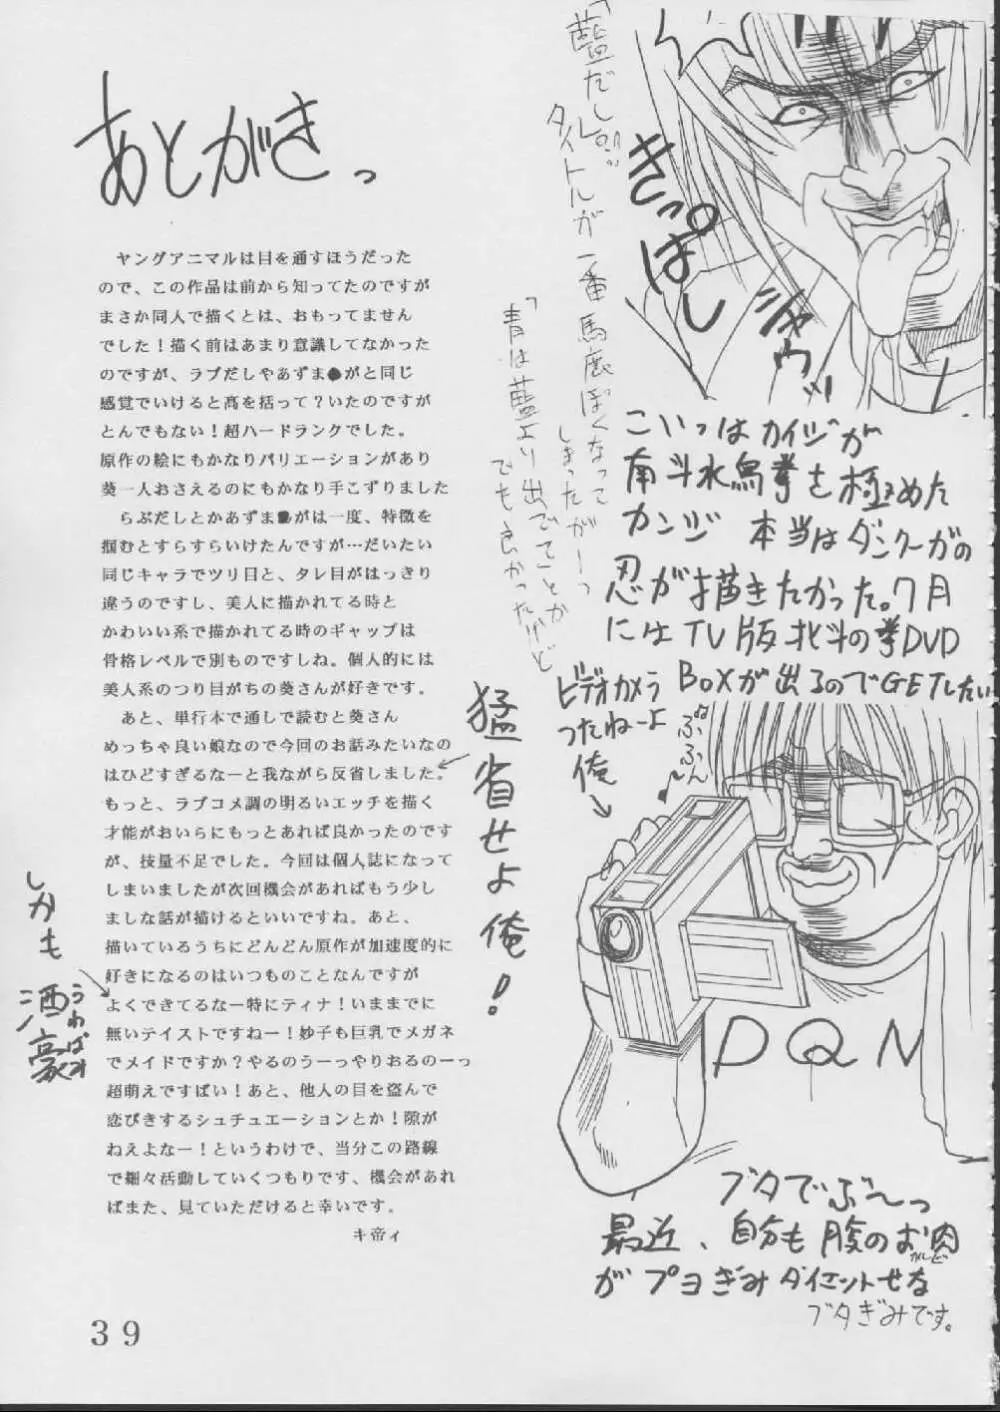 あとがきっ
ヤングアニマルは目を通すほうだった
ので、この作品は前から知ってたのですが
まさか同人で描くとは、おもってません
でした！描く前はあまり意識してなかった
のですが、ラブだしやあずま●がと同じ
感覚でいけると高を括って？いたのですが
とんでもない！超ハードランクでした。
原作の絵にもかなりバリエーションがあり
葵一人おさえるのにもかなり手こずりました
らぶだしとかあずま●がは一度、特徴を
掴むとすらすらいけたんですが…だいたい
同じキャラでツリ目と、タレ目がはっきり
違うのですし、美人に描かれてる時と
かわいい系で描かれてる時のギャップは
骨格レベルで別ものですしね。個人的には
美人系のつり目がちの葵さんが好きです。
あと、単行本で通しで読むと葵さん
めっちゃ良い娘なので今回のお話みたいなの
はひどすぎるなーと我ながら反省しました。
もっと、ラブコメ調の明るいエッチを描く
才能がおいらにもっとあれば良かったのです
が、技量不足でした。今回は個人誌になって
しまいましたが次回機会があればもう少し
ましな話が描けるといいですね。あと、
描いているうちにどんどん原作が加速度的に
好きになるのはいつものことなんですが
よくできてるなー特にティナ！いままでに
無いテイストですねー！妙子も巨乳でメガネ
でメイドですか？やるのうーっやりおるのーっ
超萌えですばい！あと、他人の目を盗んで
恋びきするシュチュエーションとか！隙が
ねえよなー！というわけで、当分この路線
で細々活動していくつもりです、機会があれ
ばまた、見ていただけると幸いです。
キ帝ィ
しかも
酒豪
うわばみ
猛省せよ俺！
「藍だし」
タイトルが一番馬鹿ぽくなって
しまったがーっ
「青は藍より出でてとか
でも良かったけど
きっぱし
シャウッ
こいつはカイジが
南斗水鳥拳を極めた
カンジ 本当はダンクーガの
忍が描きたかった。7月
にはTV版北斗の拳DVD
BOXが出るのでGETしたい
ビデオカメラ
つたねーよ
俺
ぶふん
DQN
ブタでぶ〜っ
最近、自分も腹のお肉
がプヨぎみダイエットせな
ブタぎみです。
39